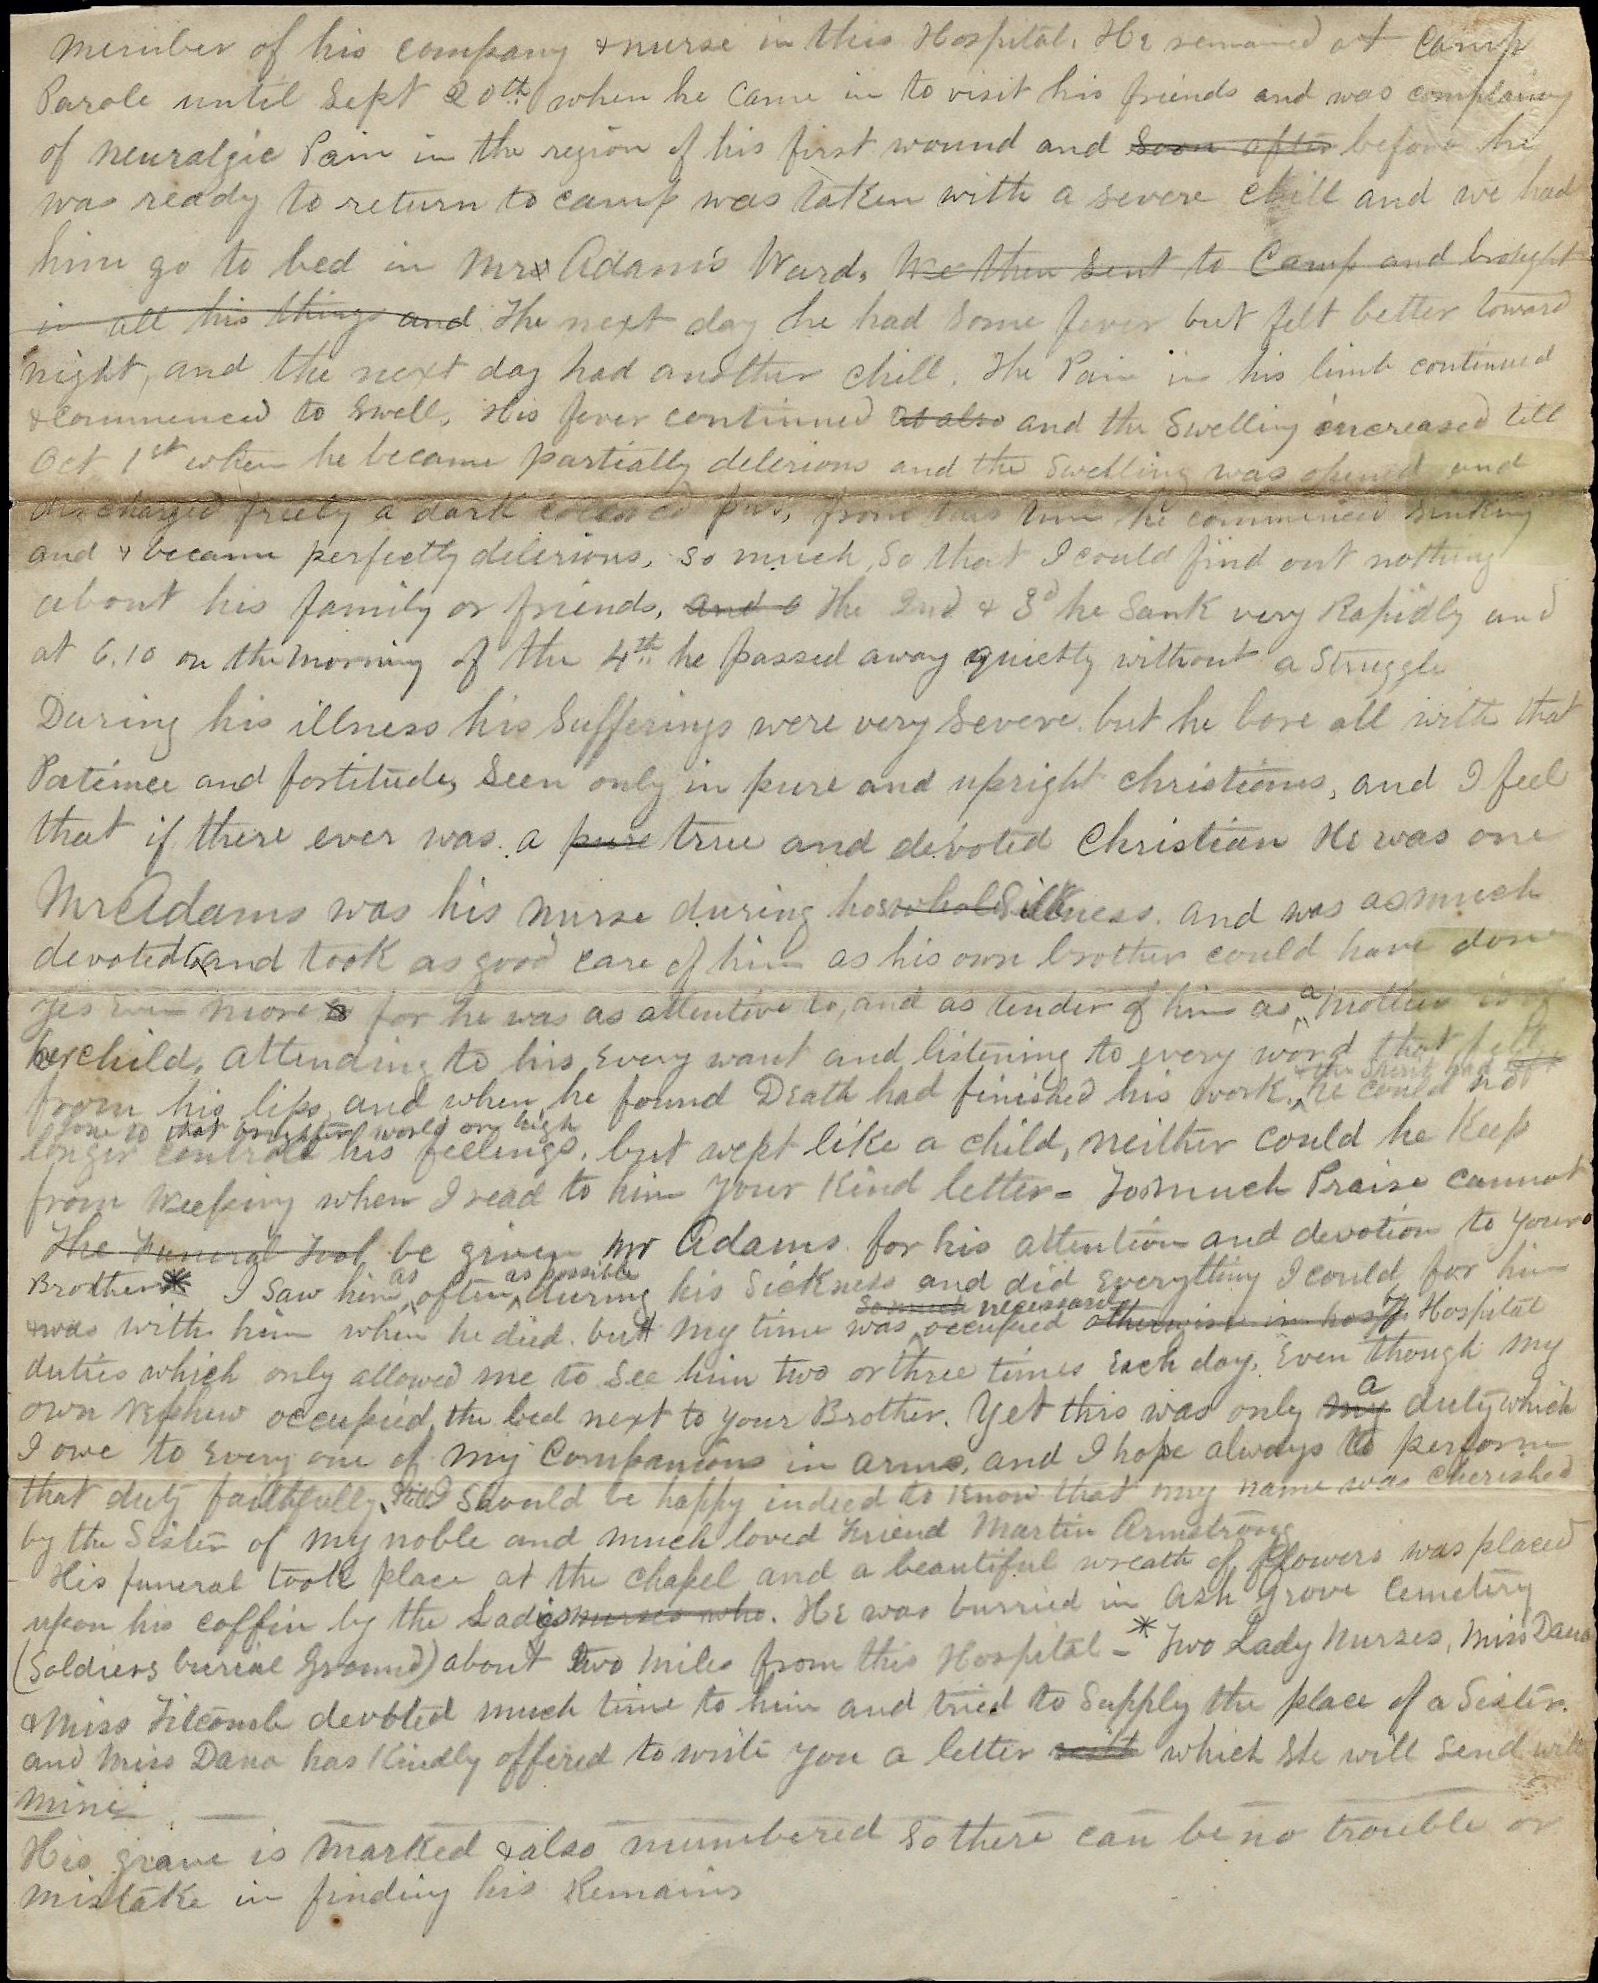 member of his company & nurse in this Hospital. He remained at Camp
Parole until Sept 20th when he came in to visit his friends and was complaining
of neuralgic Pain in the region of his first wound and soon after before he
was ready to return to camp was taken with a severe chill and we had
him go to bed in Mr Adams Ward. We then sent to Camp and brought
in all his things and The next day he had some fever but felt better toward
night, and the next day had another chill. The Pain in his limb continued
& commenced to swell. His fever continued as also and the Swelling increased till
Oct 1st when he became partially delerious and the Swelling was opened and
discharged freely a dark colored pus, from this time he commenced Sinking
and & became perfectly delerious, so much so that I could find out nothing
about his family or friends, and The 2nd & 3d he Sank very Rapidly and
at 6.10 on the morning of the 4th he passed away quietly without a Struggle
During his illness his Sufferings were very Severe but he bore all with that
Patience and fortitude, Seen only in pure and upright christians, and I feel
that if there ever was a pure true and devoted Christian He was one
Mr Adams was his nurse during his whole Sickness and was as much
devoted and took as good care of him as his own brother could have done
yes even more for he was as attentive to, and as tender of him as a Mother is of
her child, attending to his every want and listening to every word that fell
from his lips, and when he found Death had finished his work, & the Spirit had he could not
gone to that brighter world on high
longer controll his feelings, but wept like a child, neither could he Keep
from Weeping when I read to him your Kind letter = Too much Praise cannot
The Funeral Took be given Mr Adams for his attention and devotion to your
Brother * I Saw him as often as possible during his Sickness and did Everything I could for him
& was with him when he died. but my time was so much necessarily occupied otherwise in hosp by Hospital
duties which only allowed me to See him two or three times Each day, Even though my
own Nephew occupied the bed next to your Brother. Yet this was only my a duty which
I owe to Every one of my Companions in arms, and I hope always to perform
that duty faithfully, Still I Should be happy indeed to Know that my name was cherished
by the Sister of my noble and much loved Friend Martin Armstrong
His funeral took place at the chapel and a beautiful wreath of flowers was placed
upon his coffin by the Ladies nurses who. He was burried in Ash Grove Cemetery
(Soldiers burial Ground) about Two miles from this Hospital = * Two Lady Nurses, Miss Dana
& Miss Titcomb devoted much time to him and tried to Supply the place of a Sister.
and Miss Dana has Kindly offered to write you a letter which She will send with
mine
His grave is marked & also numbered So there can be no trouble or
mistake in finding his Remains